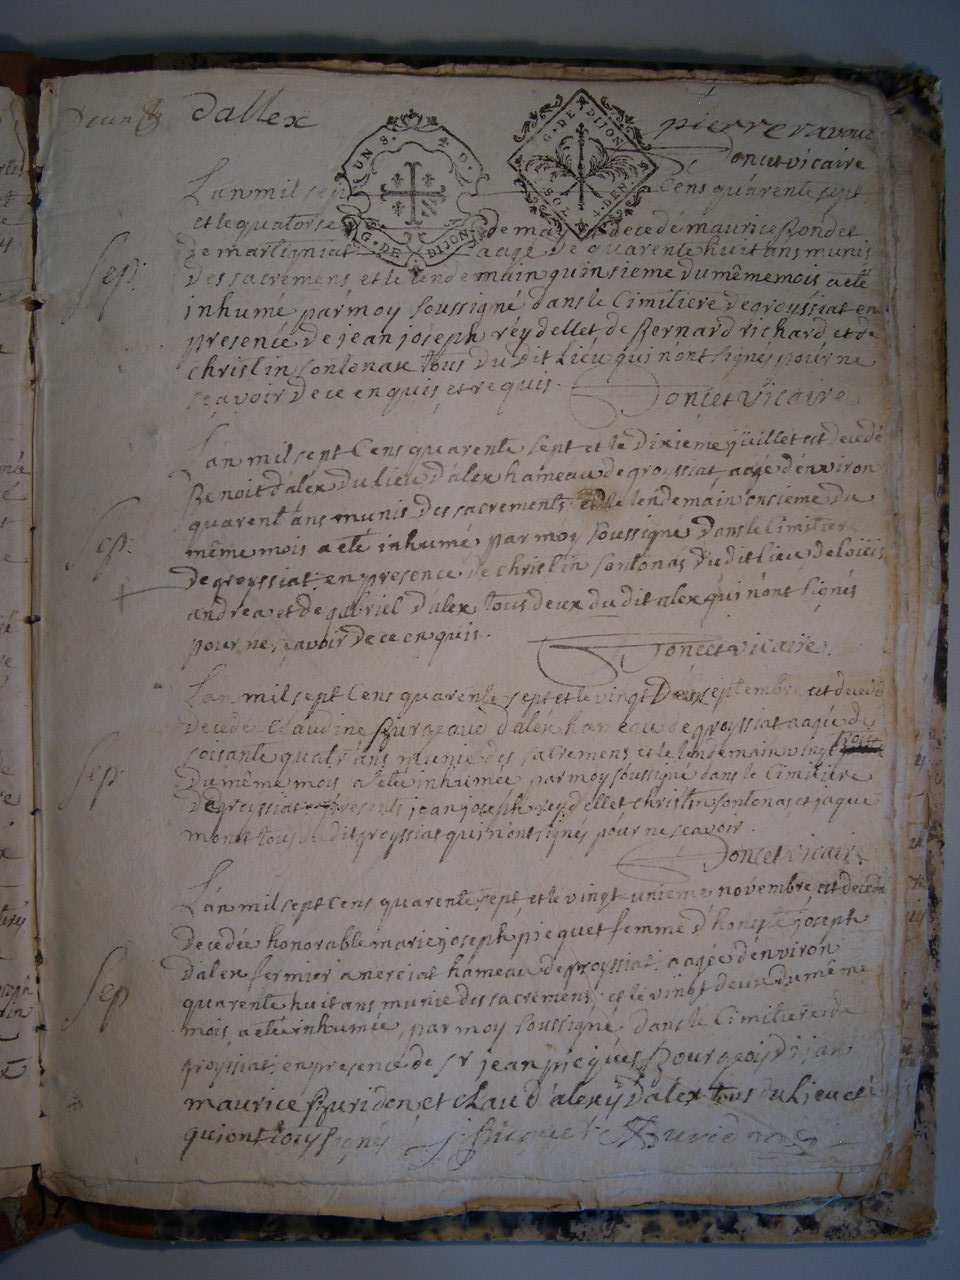 dallex
pierre ravinet
Doncet vicaire
UN S. 4 D.
G. DE DIJON
G. DE DIJON
DEN
Lan mil sept Cens quarente sept
et le quatorse de ma decedé maurice Rondet
de martigniat aagé de quarente huit ans munis
Des sacremens et le lendemain quinsieme du même mois a eté
inhumé par moy soussigné dans le Cimiliere de groyssiat en
presence de jean joseph reydellet de Bernard richard, et de
christin sontonax tous du dit Lieu qui n'ont signés pour ne
sçavoir de ce enquis et requis. Doncet vicaire
Sep:
Lan mil sept Cens quarente sept et le dixième juillet est decedé
Benoit d'alex du lieu d'alex hameau de groyssiat, aagé d'environ
quarent ans munis des sacrements et le lendemain onsieme du
même mois a eté inhumé par moy soussigné dans le Cimiliere
de groyssiat en presence de christin sontonas du dit lieu, de loüis
andrea et de gabriel d'alex tous deux du dit alex qui n'ont signés
pour ne sçavoir de ce enquis.
Doncet vicaire.
Sep:
Lan mil sept Cens quarente sept et le vingt Deux septembre est decedé
decedé Claudine d'alex hameau de groyssiat aagée de
soisante quatr'ans munie des sacremens et le lendemain vingt trois
du même mois a eté inhumée par moy soussigné dans le Cimiliere
de groyssiat presents jean joseph reydellet christin sontonas et jaque
monet tous du dit groyssiat qui n'ont signés pour ne sçavoir.
Doncet vicaire
Sep:
L'an mil sept Cens quarente sept, et le vingt unieme novembre est decedé
decedée honorable marie joseph piequet femme d'honeste joseph
d'alex fermier a nerciat hameau de groyssiat: aagée d'environ
quarente huit ans munie des sacremens; et le vingt deux du même
mois a eté inhumée par moy soussigné dans le Cimiliere de
groyssiat en presence de sr jean jacques Bourgeois
maurice Buridon et Claud d'alexis d'alex tous du Lieu
qui ont icy signés
Sep